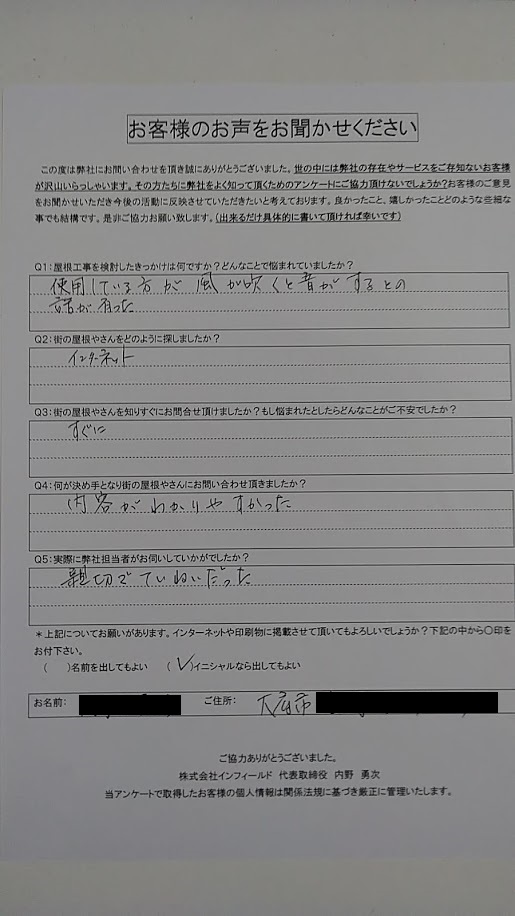 お客様のお声をお聞かせください
この度は弊社にお問い合わせを頂き誠にありがとうございました。世の中には弊社の存在やサービスをご存知ないお客様
が沢山いらっしゃいます。その方たちに弊社をよく知って頂くためのアンケートにご協力頂けないでしょうか?お客様のご意見
をお聞かせいただき今後の活動に反映させていただきたいと考えております。良かったこと、嬉しかったことどのような些細な
事でも結構です。是非ご協力お願い致します。(出来るだけ具体的に書いて頂ければ幸いです)
Q1:屋根工事を検討したきっかけは何ですか?どんなことで悩まれていましたか?
使用している方が風が吹くと音がするとの
話が有った
Q2:街の屋根やさんをどのように探しましたか?
インターネット
Q3:街の屋根やさんを知りすぐにお問合せ頂けましたか?もし悩まれたとしたらどんなことがご不安でしたか?
すぐに
Q4:何が決め手となり街の屋根やさんにお問い合わせ頂きましたか?
内容がわかりやすかった
Q5:実際に弊社担当者がお伺いしていかがでしたか?
親切でていねいだった
*上記についてお願いがあります。インターネットや印刷物に掲載させて頂いてもよろしいでしょうか?下記の中から○印を
お付下さい。
( )名前を出してもよい (✓)イニシャルなら出してもよい
お名前: ご住所: 大府市
ご協力ありがとうございました。
株式会社インフィールド 代表取締役 内野 勇次
当アンケートで取得したお客様の個人情報は関係法規に基づき厳正に管理いたします。